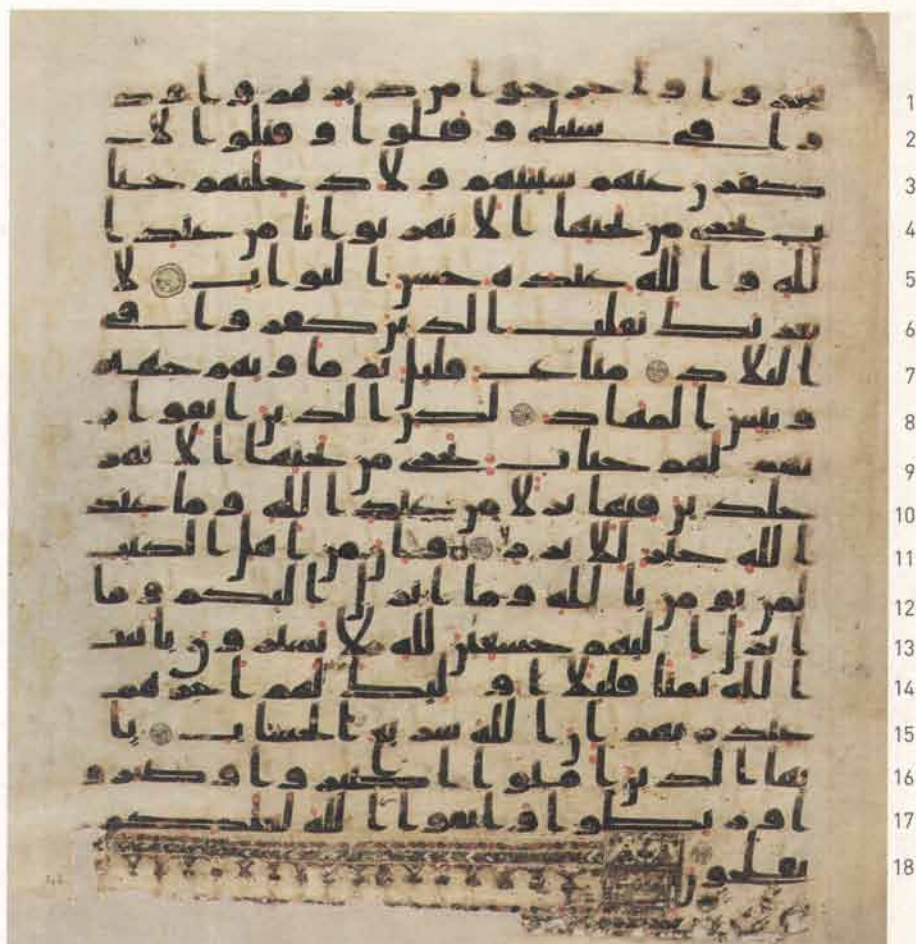 جروا واخرجوا من ديرهم واوذ 1
وا في سبيلي وقتلوا وقتلوا لا 2
كفرن عنهم سيتهم ولادخلنهم جنا 3
ت تجري من تحتها الانهر ثوابا من عند ا 4
لله والله عنده حسن الثواب لا 5
يغرنك تقلب الذين كفروا في 6
البلاد متاع قليل ثم ماويهم جهنم 7
وبيس المهاد لكن الذين اتقوا ر 8
بهم لهم جنات تجري من تحتها الانهر 9
خلدين فيها نزلا من عند الله وما عند 10
الله خير للابرار وان من اهل الكتب 11
لمن يومن بالله وما انزل اليكم وما 12
انزل اليهم خشعين لله لا يشترون بايت 13
الله ثمنا قليلا اوليك لهم اجرهم 14
عند ربهم ان الله سريع الحساب يا 15
يها الذين امنوا اصبروا وصابروا و 16
رابطوا واتقوا الله لعلكم 17
تفلحون 18